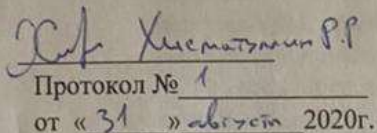 Хисматуллин Р.Р
Протокол № 1
от « 31 » август 2020г.